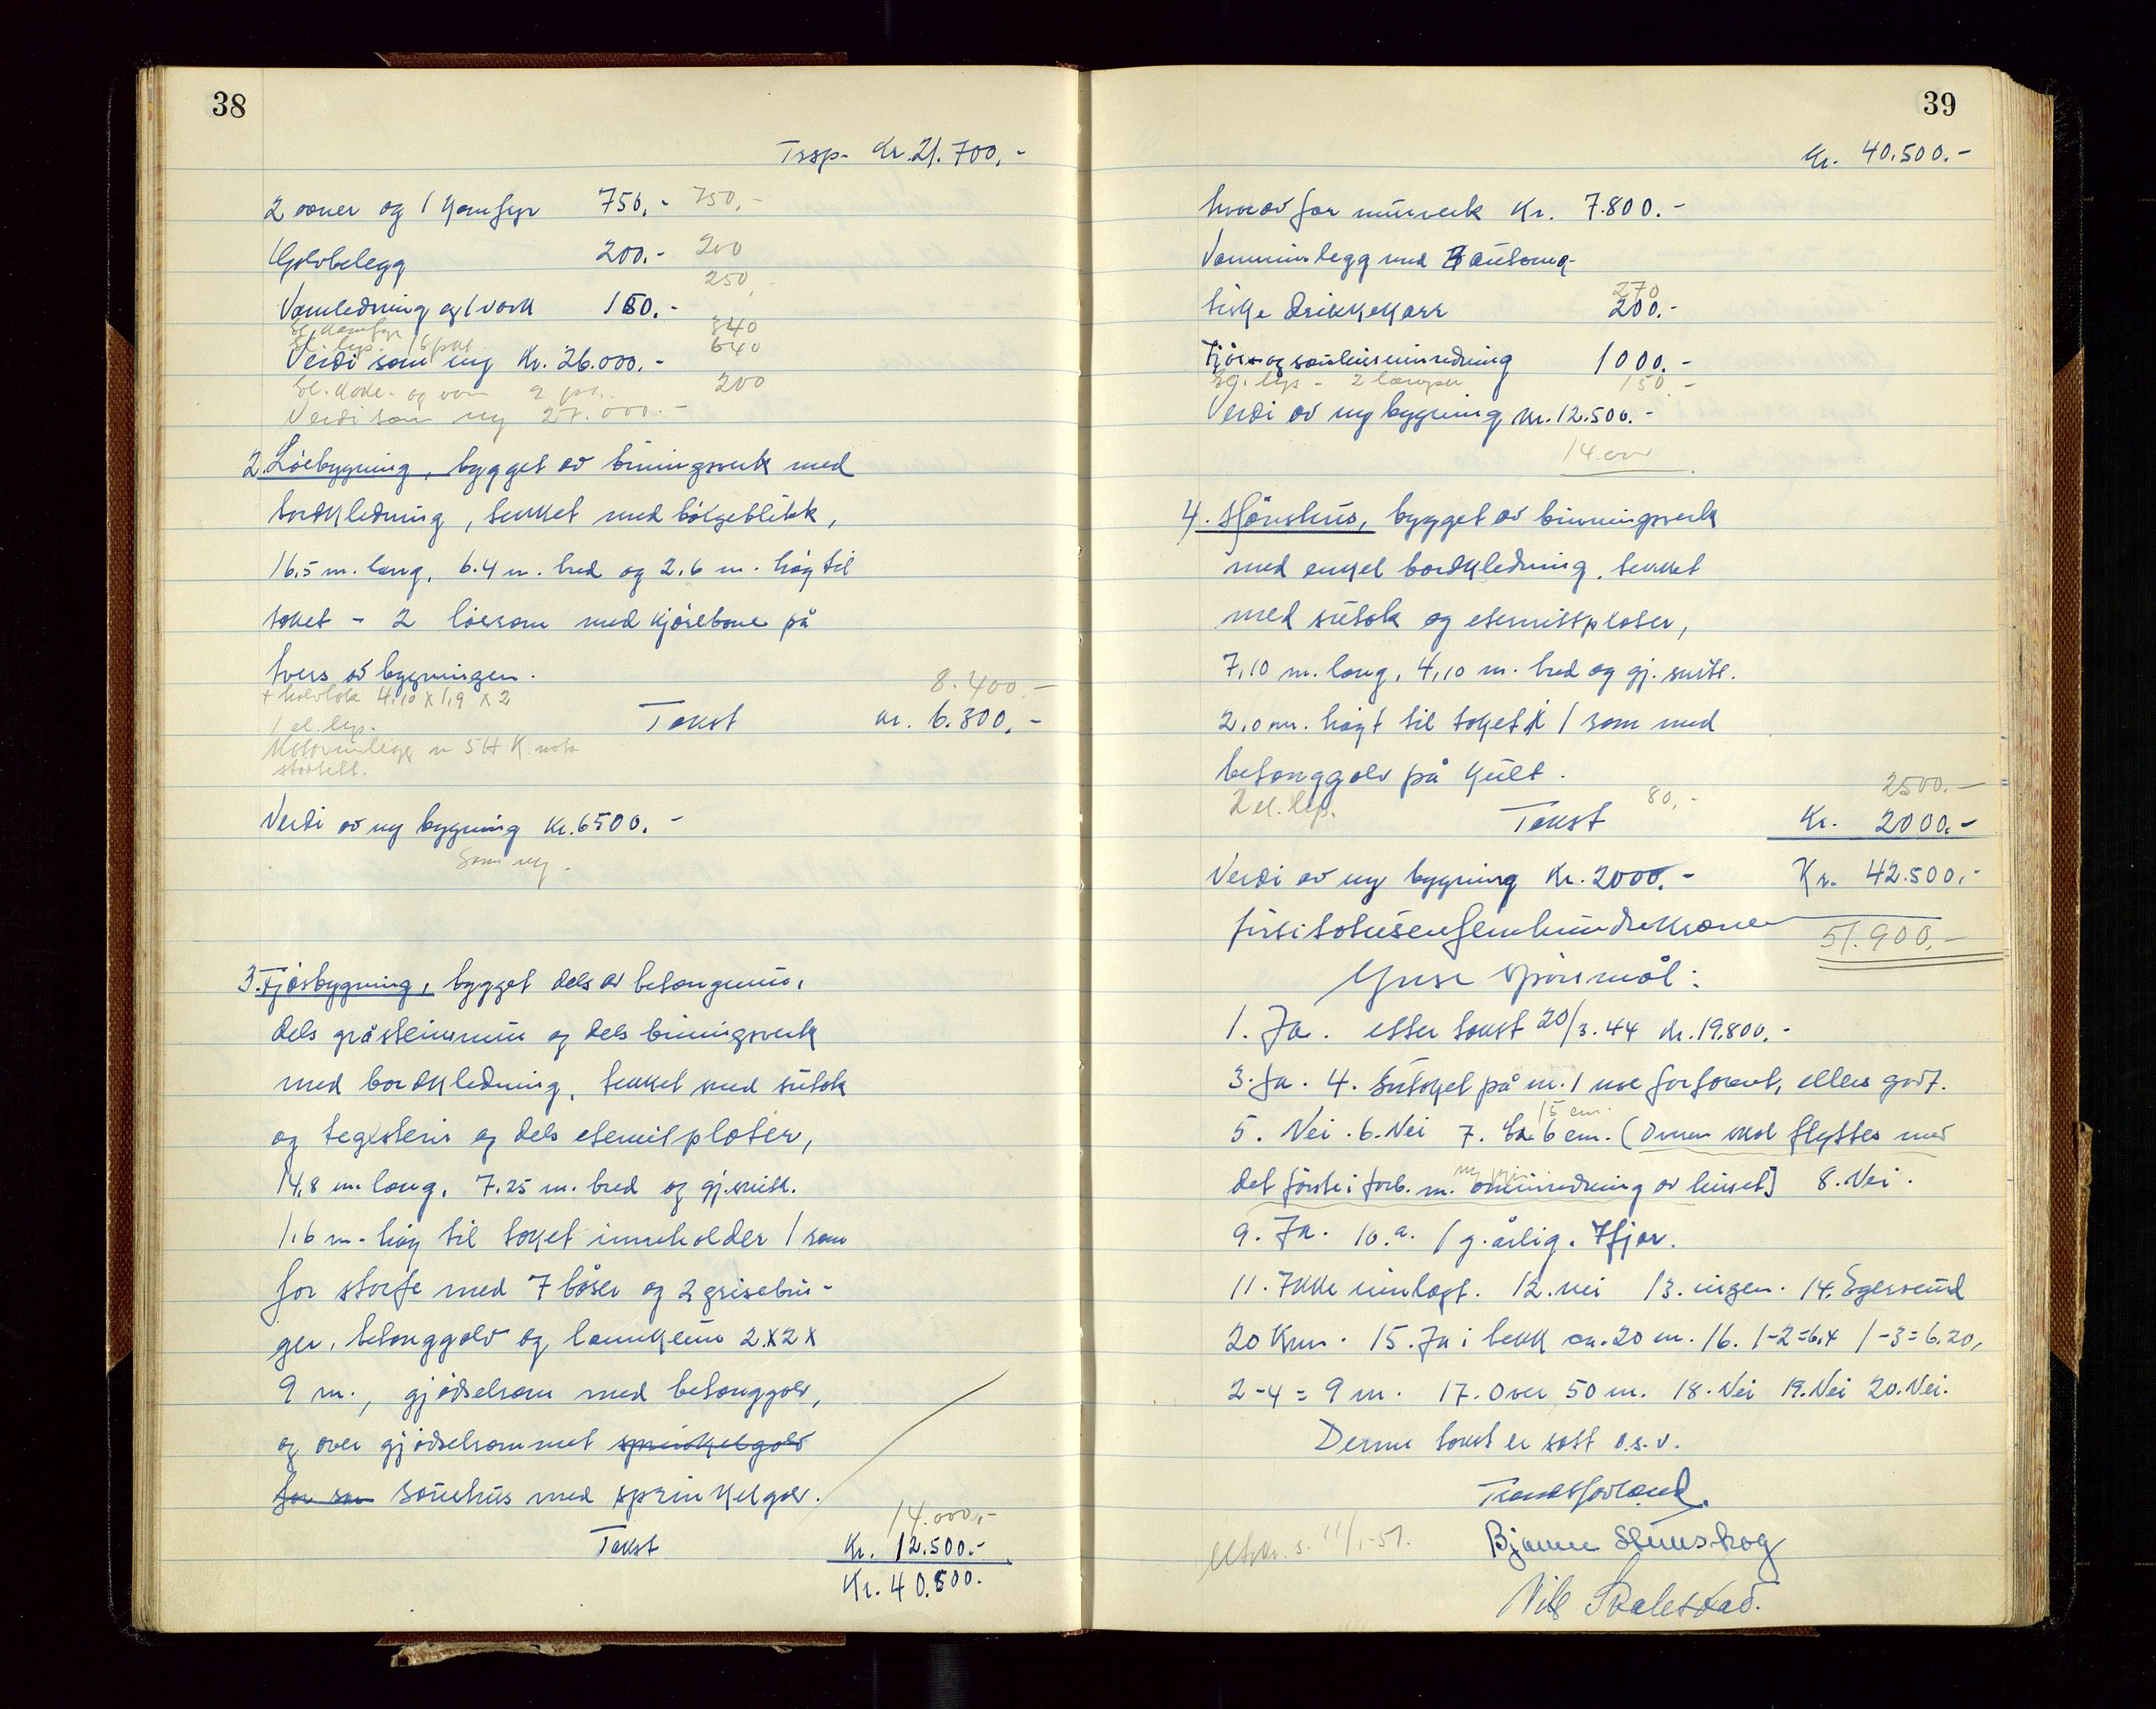 38
Trsp. Kr. 21.700,-
2 ovner og 1 komfyr 750,- 750,-
Golvbelegg 200.- 200
250,-
Vannledning og 1 vask 150.-
El. komfyr 340
El. lys. 16 pkt 640
Verdi som ny Kr. 26.000.-
El. koke- og 2 200
Verdi som ny 27.000.-
2. Löebygning, bygget av binningsverk med
bordkledning, tekket med bölgeblikk,
16,5 m. lang, 6.4 m. bred og 2,6 m. høg til
taket - 2 löerom med kjörebane på
tvers av bygningen.
+ halvtak 4,10 x 1,9 x 2 8.400.-
1 el. lys. Takst Kr. 6.300.-
Motorinnlegg m 5 H.K. moto
stövtett.
Verdi av ny bygning Kr. 6500.-
Som ny.
3. Fjösbygning, bygget dels av betongmur,
dels gråsteinsmur og dels binningsverk
med bordkledning, tekket med sutak
og teglstein og dels eternitplater,
14,8 m. lang, 7.25 m. bred og gj.snitt.
1,6 m. høg til taket inneholder 1 rom
for storfe med 7 båser og 2 grisebin-
ger, betonggolv og landkum 2 x 2 x
9 m., gjödselrom med betonggolv,
og over gjödselrommet sprinkelgolv
for sau sauehus med sprinkelgolv.
14.000,-
Takst Kr. 12.500.-
Kr. 40.500.
39
Kr. 40.500.-
hvorav for murverk Kr. 7.800.-
Vanninnlegg med automa-
270
tiske drikkekarr 200.-
Fjös- og sauehusinnredning 1000.-
El. lys - 2 lamper 150.-
Verdi av ny bygning Kr. 12.500.-
14.000
4. Hönsehus, bygget av binningsverk
med enkel bordkledning, tekket
med sutak og eternittplater,
7,10 m. lang, 4,10 m. bred og gj. snitt.
2,0 m. høgt til taket i 1 rom med
betonggolv på kult.
2 el. lys. 80,- 2500.-
Takst Kr. 2000.-
Verdi av ny bygning Kr. 2000.- Kr. 42.500.-
förtitotusenfemhundrekroner
51.900,-
Yvse spörsmål:
1. Ja. etter takst 20/3.44 Kr. 19.800.-
3. Ja. 4. Sutaket på nr. 1 noe forfarent, ellers godt.
15 cm.
5. Nei. 6. Nei 7. ca 6 cm. (Ovnen skal flyttes med
det förste i forb. m. ominnredning av huset) 8. Nei.
9. Ja. 10. a. 1 g. årlig. 7 fjor.
11. Ikke innlagt. 12. nei 13. ingen. 14. Egersund
20 Km. 15. Ja i bekk ca. 20 m. 16. 1-2=6,4 1-3=6.20,
2-4=9 m. 17. Over 50 m. 18. Nei 19. Nei 20. Nei.
Denne takst er satt o.s.v.
Bjarne Stenskog
Utskr. s. 11/1-51.
Nils Skalestad.